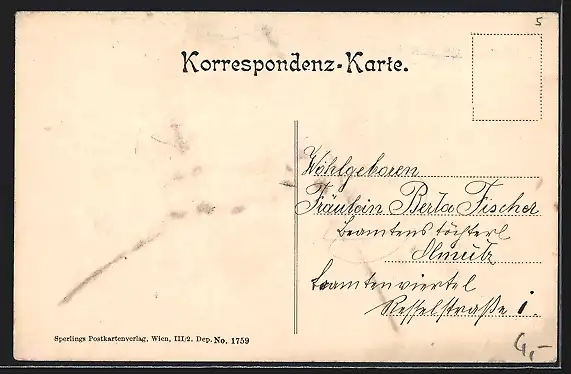 5
Korrespondenz-Karte.
Wohlgeboren
Fräulein Berta Fischer
Beamtens töchterl
Olmütz
Beamtenviertel
Resselstraße 1.
Sperlings Postkartenverlag, Wien, III/2, Dep. No. 1759
4,-